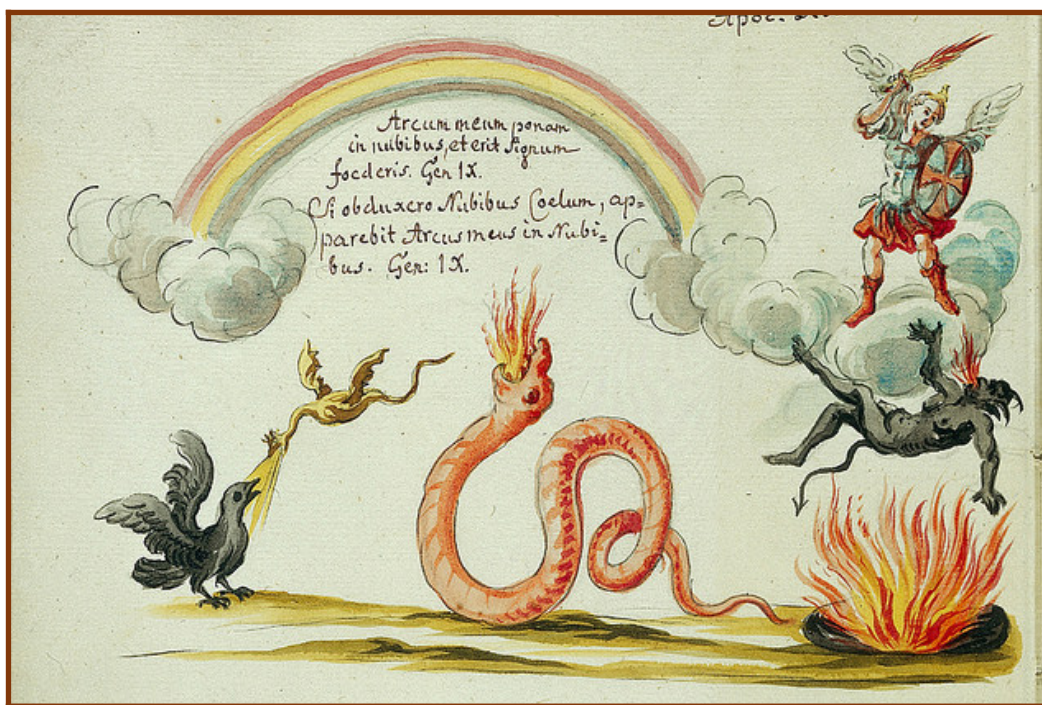 Apoc.
Arcum meum ponam
in nubibus, et erit Signum
foederis. Gen IX.
Si obduxero Nubibus Coelum, ap=
parebit Arcus meus in Nubi=
bus. Gen: IX.